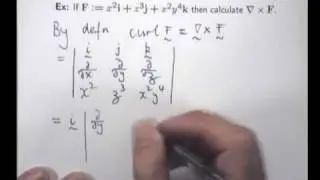 Ex: If F := x²i + z³j + x²y⁴k then calculate ∇ × F.
By defn curl F = ∇ × F
= | i j k
∂/∂x ∂/∂y ∂/∂z
x² z³ x²y⁴ |
= i | ∂/∂y